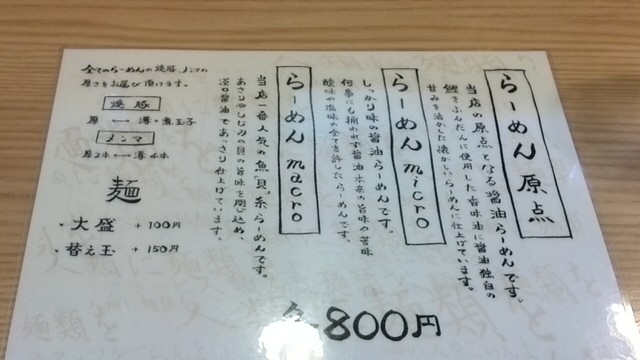 らーめん 原点
当店の原点となる醤油らーめんです。
鰹をふんだんに使用した香味油に醤油独自の
甘みを活かした懐かしいらーめんに仕上げています。
らーめん micro
しっかり味の醤油らーめんです。
何事にも捕われず醤油本来の旨味の苦味
酸味や塩味の全てを許したらーめんです。
らーめん macro
当店一番人気の魚「貝」系らーめんです。
あさりやしじみの貝の旨味を閉じ込め、
淡口醤油であっさり仕上げています。
各800円
全てのらーめんの焼豚、メンマの
厚さをお選び頂けます。
焼豚
厚 ⟷ 薄+煮玉子
メンマ
厚2本 ⟷ 薄4本
麺
・大盛 +100円
・替え玉 +150円